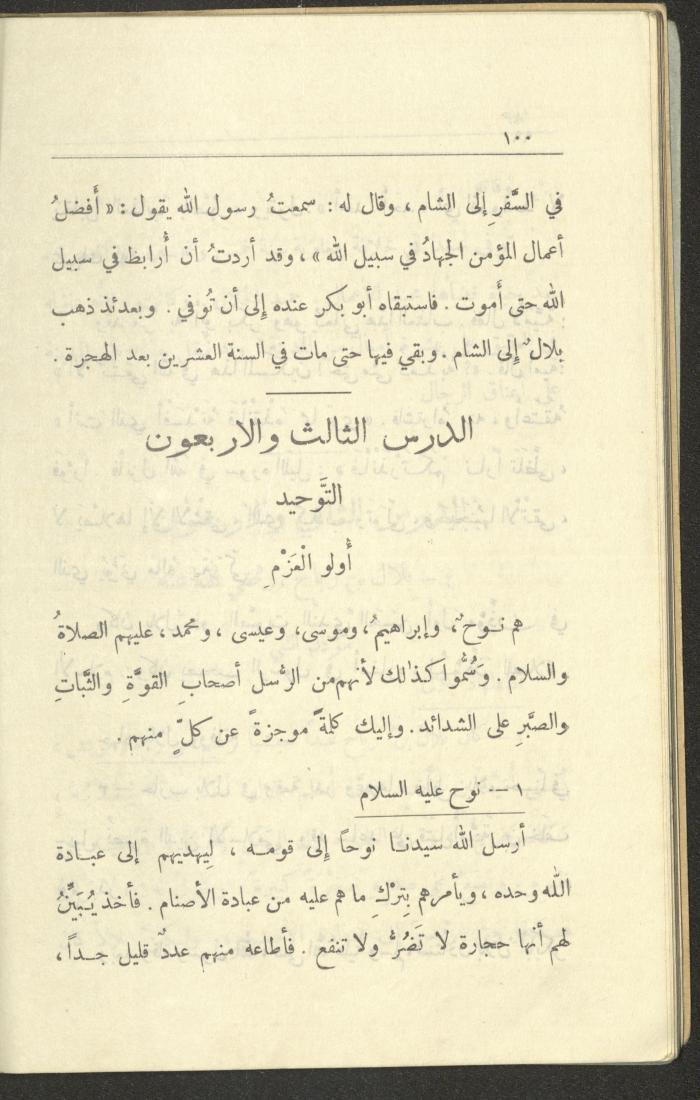 ١٠٠
في السَّفرِ إلى الشام ، وقال له : سمعتُ رسول الله يقول : « أَفضلُ
أعمال المؤمن الجهادُ في سبيل الله » ، وقد أردتُ أن أُرابظ في سبيل
الله حتى أَموت . فاستبقاه أبو بكر عنده إلى أن تُوفي . وبعدئذ ذهب
بلالٌ إلى الشام . وبقي فيها حتى مات في السنة العشرين بعد الهجرة .
الدرس الثالث والاربعون
التَّوحيد
أُولو الْعَزْمِ
هم نوحٌ ، وإبراهيمُ ، وموسى ، وعيسى ، ومحمد ، عليهم الصلاةُ
والسلام . وَسُمُّوا كذلك لأنهم من الرُّسل أصحابِ القوَّةِ والثَّباتِ
والصَّبرِ على الشدائد . وإليك كلمةً موجزةً عن كلٍّ منهم .
١ -- نوح عليه السلام
أرسل الله سيدنا نوحاً إلى قومه ، لِيهديهم إلى عبادة
الله وحده ، ويأمرهم بِتَرْكِ ما هم عليه من عبادة الأصنام . فأخذ يُبَيِّنُ
لهم أنها حجارة لا تَضُرُّ ولا تنفع . فأطاعه منهم عددٌ قليل جداً ،